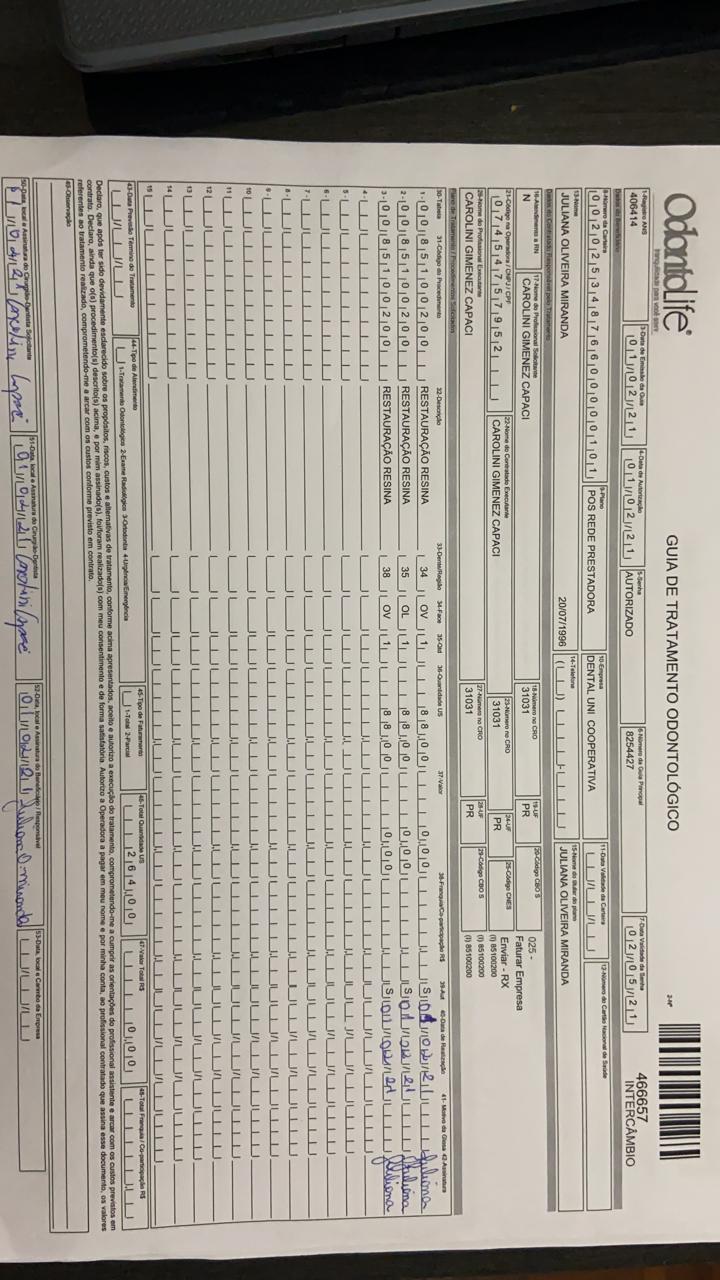 OdontoLife®
tranquilidade para você sorrir
GUIA DE TRATAMENTO ODONTOLÓGICO
2-Nº
466657
INTERCÂMBIO
1-Registro ANS
406414
3-Data de Emissão da Guia
01/02/21
4-Data de Autorização
01/02/21
5-Senha
AUTORIZADO
6-Número da Guia Principal
8254427
7-Data Validade da Senha
02/05/21
Dados do Beneficiário
8-Número da Carteira
00202534876600000101
9-Plano
POS REDE PRESTADORA
10-Empresa
DENTAL UNI COOPERATIVA
11-Data Validade da Carteira
12-Número do Cartão Nacional de Saúde
13-Nome
JULIANA OLIVEIRA MIRANDA
20/07/1996
14-Telefone
15-Nome do titular do plano
JULIANA OLIVEIRA MIRANDA
Dados do Contratado Responsável pelo Tratamento
16-Atendimento a RN
N
17-Nome do Profissional Solicitante
CAROLINI GIMENEZ CAPACI
18-Número no CRO
31031
19-UF
PR
20-Código CBO S
025 -
Faturar Empresa
21-Código na Operadora / CNPJ / CPF
07454757952
22-Nome do Contratado Executante
CAROLINI GIMENEZ CAPACI
23-Número no CRO
31031
24-UF
PR
25-Código CNES
Enviar - RX
(I) 85100200
(I) 85100200
(I) 85100200
26-Nome do Profissional Executante
CAROLINI GIMENEZ CAPACI
27-Número no CRO
31031
28-UF
PR
29-Código CBO S
Plano de Tratamento / Procedimentos Solicitados
30-Tabela 31-Código do Procedimento 32-Descrição 33-Dente/Região 34-Face 35-Qtd 36-Quantidade US 37-Valor 38-Franquia/Co-participação R$ 39-Aut 40-Data de Realização 41- Motivo da Glosa 42-Assinatura
1- 00 85100200 RESTAURAÇÃO RESINA 34 OV 1 88,00 0,00 S 01/02/21 Juliana
2- 00 85100200 RESTAURAÇÃO RESINA 35 OL 1 88,00 0,00 S 01/02/21 Juliana
3- 00 85100200 RESTAURAÇÃO RESINA 38 OV 1 88,00 0,00 S 01/02/21 Juliana
4-
5-
6-
7-
8-
9-
10
11
12
13
14
15
43-Data Previsão Término do Tratamento
44-Tipo de Atendimento
1-Tratamento Odontológico 2-Exame Radiológico 3-Ortodontia 4-Urgência/Emergência
45-Tipo de Faturamento
1-Total 2-Parcial
46-Total Quantidade US
264,00
47-Valor Total R$
0,00
48-Total Franquia / Co-participação R$
Declaro, que após ter sido devidamente esclarecido sobre os propósitos, riscos, custos e alternativas de tratamento, conforme acima apresentados, aceito e autorizo a execução do tratamento, comprometendo-me a cumprir as orientações do profissional assistente e arcar com os custos previstos em
contrato. Declaro, ainda que o(s) procedimento(s) descrito(s) acima, e por mim assinado(s), foi/foram realizado(s) com meu consentimento e de forma satisfatória. Autorizo a Operadora a pagar em meu nome e por minha conta, ao profissional contratado que assina esse documento, os valores
referentes ao tratamento realizado, comprometendo-me a arcar com os custos conforme previsto em contrato.
49-Observação
50-Data, local e Assinatura do Cirurgião-Dentista Solicitante
01/02/21 Carolini Capaci
51-Data, local e Assinatura do Cirurgião-Dentista
01/02/21 Carolini Capaci
52-Data, local e Assinatura do Beneficiário / Responsável
01/02/21 Juliana O. miranda
53-Data, local e Carimbo da Empresa